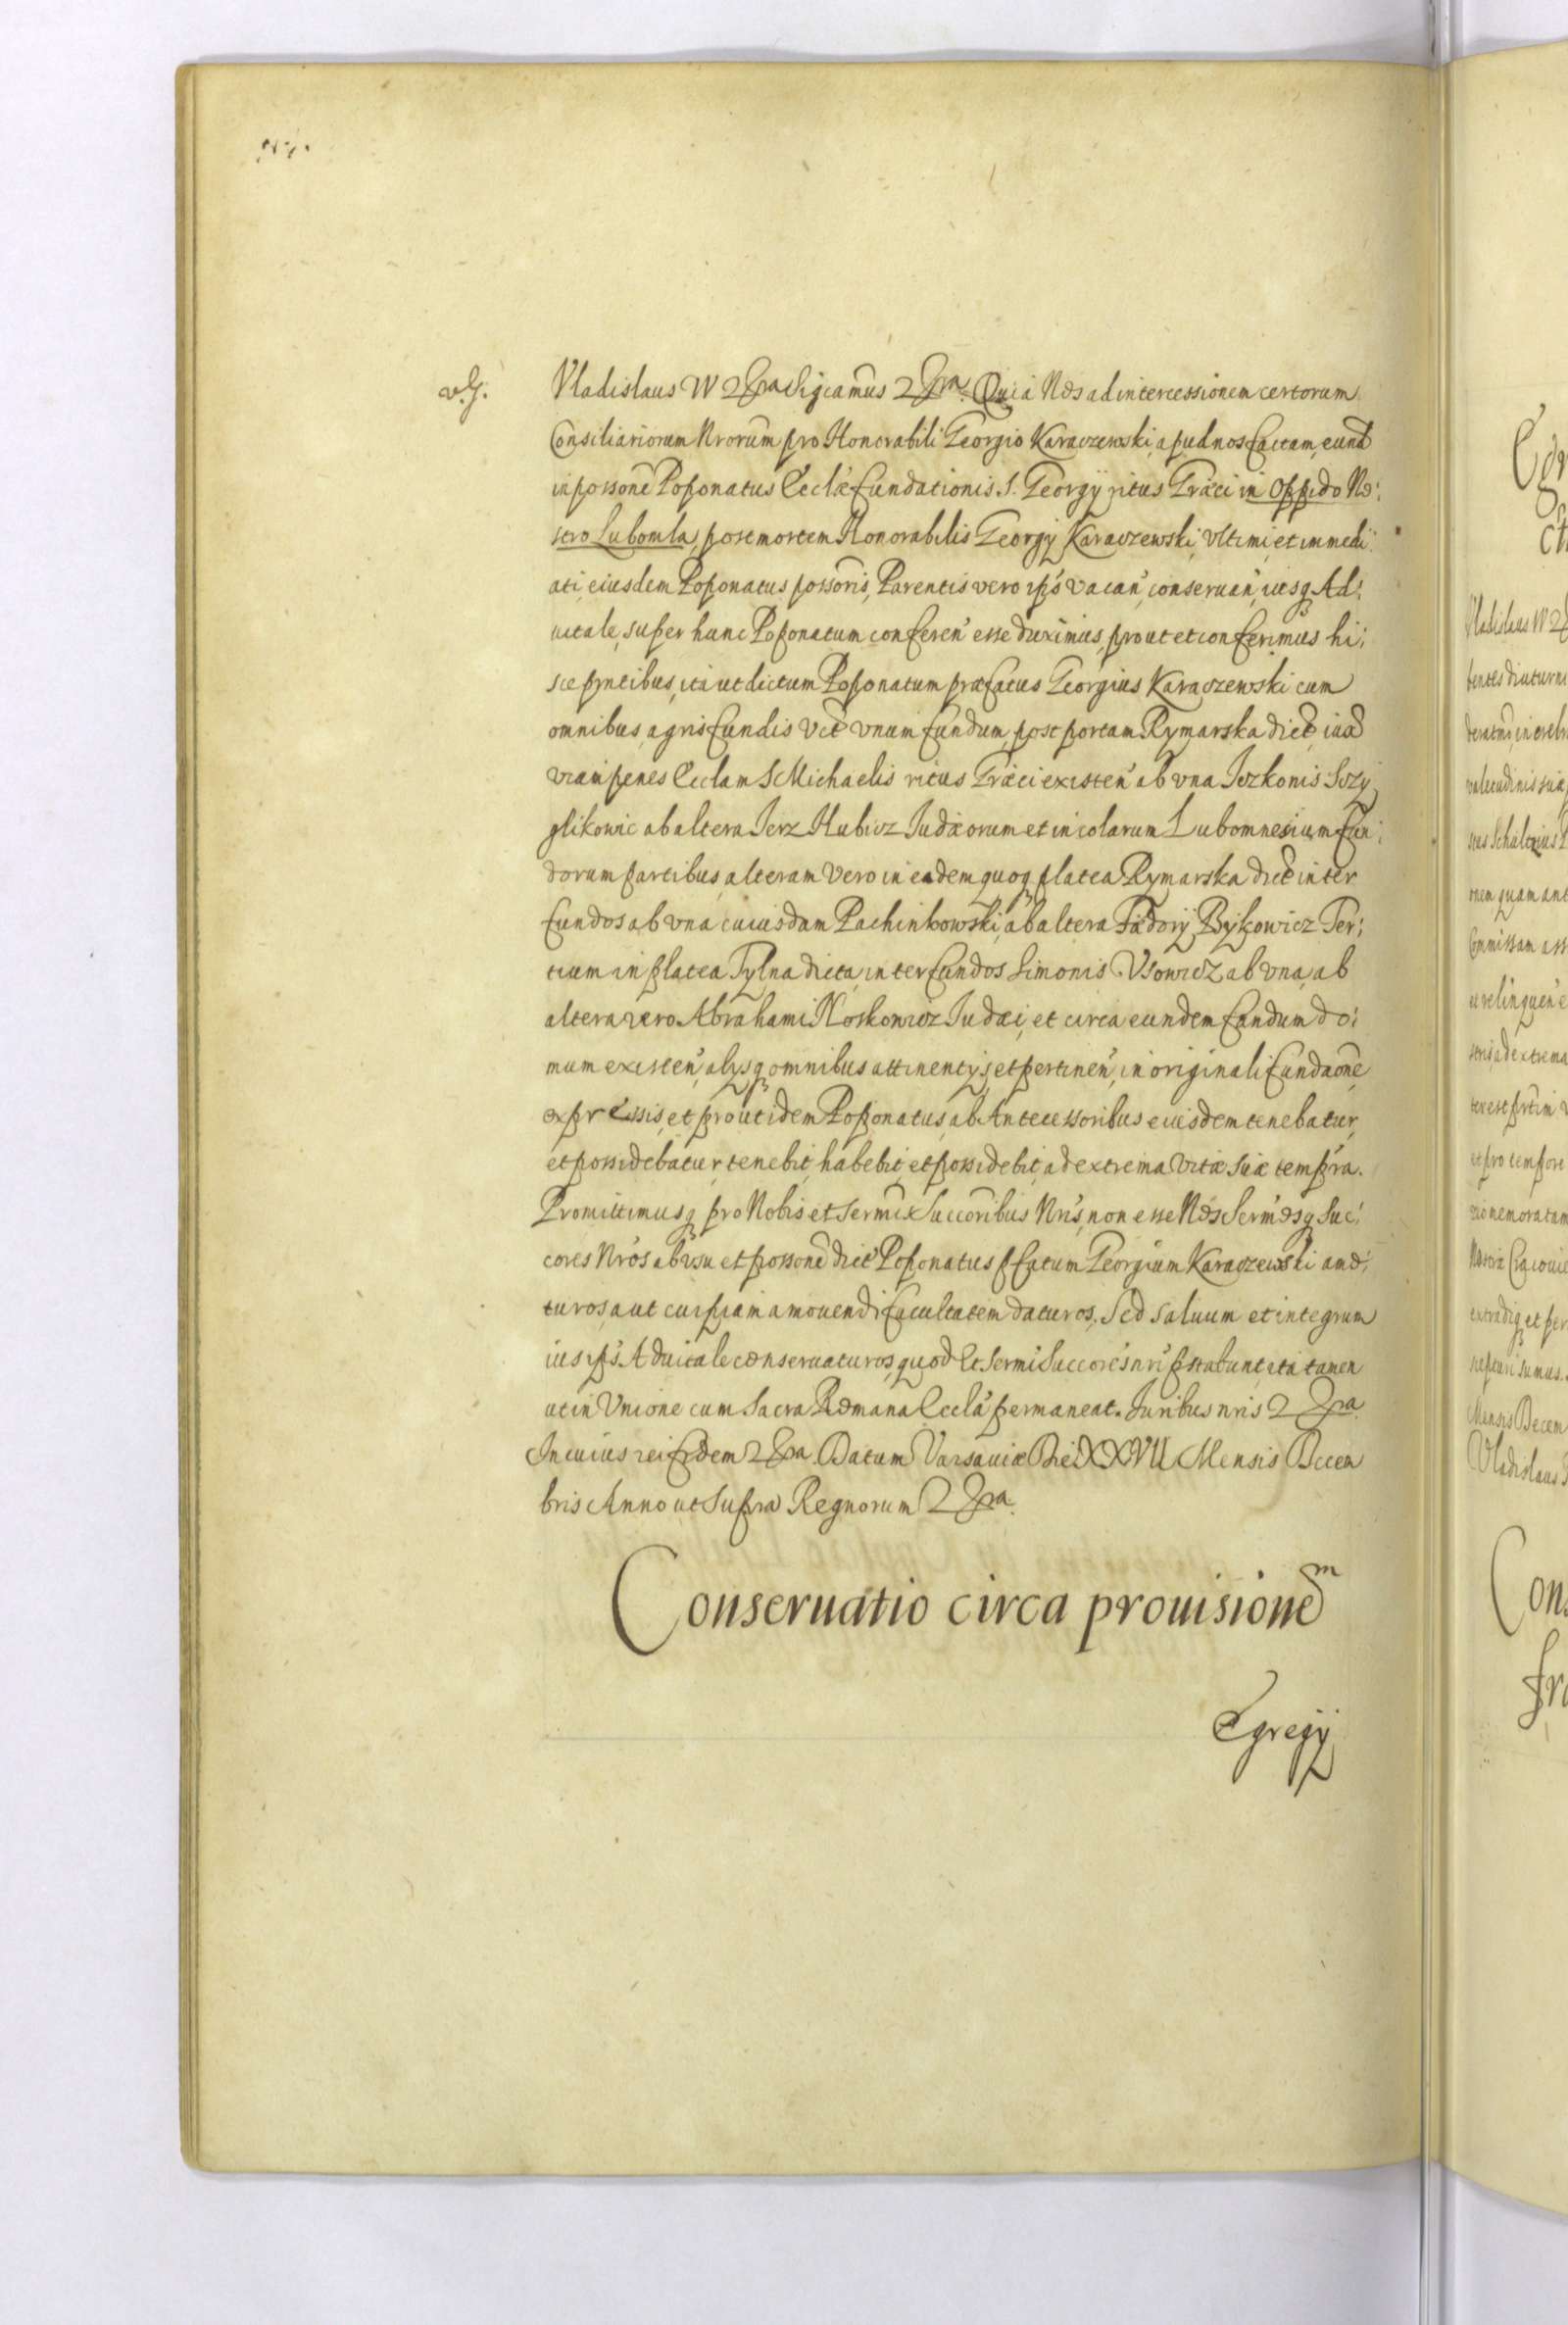 Vladislaus IV &ra Sigcamus &ra. Quia Nos ad intercessionem certorum
Consiliariorum Nrorum pro Honorabili Georgio Karaczewski, apud nos factam, eund
in possone Poponatus Eeclæ fundationis S. Georgÿ ritus Græci in Oppido No:
stro Lubomla, post mortem Honorabilis Georgÿ Karaczewski, vltimi, et immedi:
ati, eiusdem Poponatus possoris, Parentis vero ips's vacan', conseruan', iusq Ad:
uitale, super hunc Poponatum conferen' esse duximus, prout et conferimus hi:
sce pntibus, ita ut dictum Poponatum præfatus Georgius Karaczewski cum
omnibus, agris fundis vct vnum fundum, post portam Rymarska dict, iuxa
viam penes Ecclam S Michaelis ritus Græci existen' ab vna Iozkonis Sozy
glikowic ab altera Jerz Hubicz Iudæorum et incolarum Lubomnesium fun:
dorum partibus, alteram vero in eadem quoq platea Rymarska dict inter
fundos ab vna cuiusdam Pachinkowski, ab altera Fædorÿ Bykowicz Ter:
tium in platea Tylna dicta, inter fundos Simonis Vsowicz ab vna, ab
altera vero Abrahami Noskowicz Iudæi, et circa eundem fundum do:
mum existen', alysq omnibus attinentÿs, et pertinen', in originali fundaone
expressis, et prout idem Poponatus, ab Antecessoribus eiusdem tenebatur,
et possidebatur, tenebit, habebit, et possidebit, ad extrema vitæ suæ tempra.
Promittimusq pro Nobis et Sermis Succoribus Nris, non esse Nos Sermosq Suc:
cores Nros ab vsu et possone dict Poponatus pfatum Georgium Karaczewski amo:
turos, aut cuipiam amouendi facultatem daturos. Sed saluum et integrum
ius ips's Aduitale conseruaturos, quod et Sermi Succores nri pstabunt ita tamen
ut in Vnione cum Sacra Romana Eccla permaneat. Iuribus nris &ra
In cuius rei fidem &ra. Datum Varsauiæ Die XXVII Mensis Decem
bris Anno ut supra Regnorum &ra.
Conseruatio circa prouisionem
Egregÿ